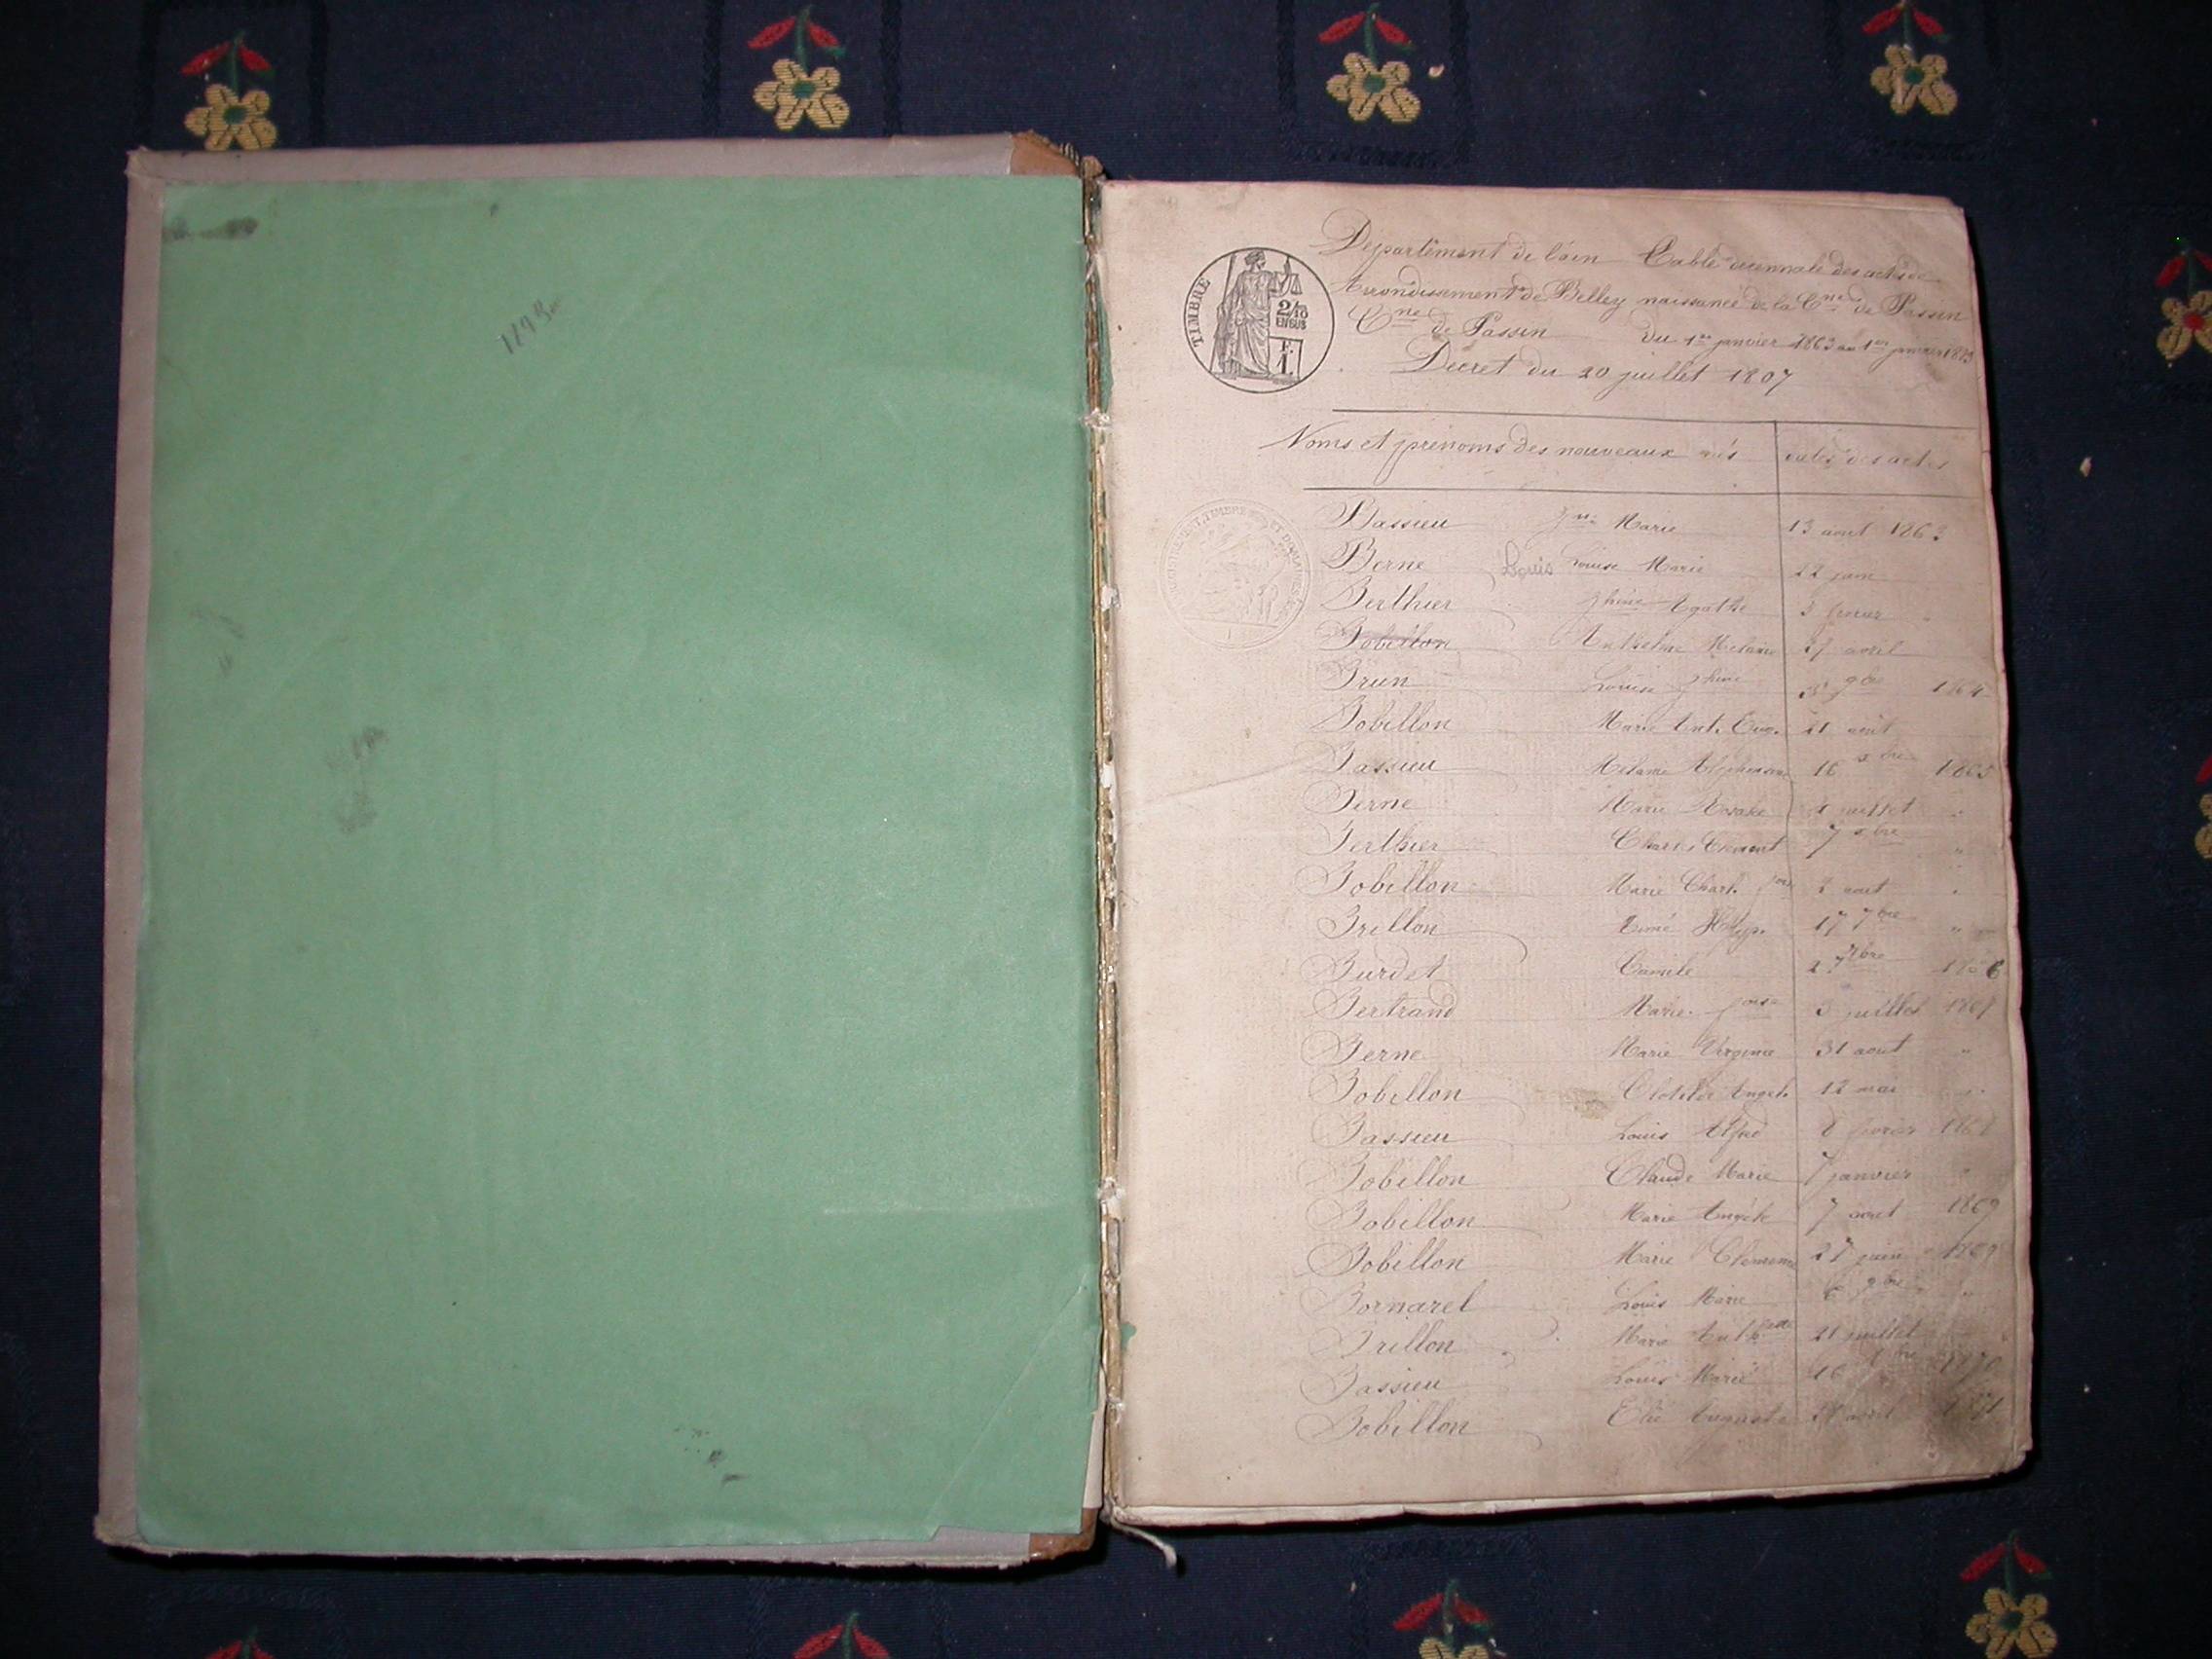 1893
TIMBRE
2/10
EN SUS
F.
1.
Département de l'ain Table décennale des actes de
Arrondissement de Belley naissance de la Cne de Passin
Cne de Passin du 1er janvier 1863 au 1er janvier 1873
Décret du 20 juillet 1807
Noms et prénoms des nouveaux nés dates des actes
Bassieu Marie 13 aout 1863
Berne Louis Louise Marie 22 juin
Berthier phine Agathe 3
Bobillon Anthelme Melanie 27 avril
Brun Louise phine 9bre 1864
Bobillon Marie Ant. Eug. 21 août
Bassieu Melanie Alphonsine 16 xbre 1865
Berne Marie juillet "
Berthier Charles Clement 7 xbre "
Bobillon Marie Charl. 2 aout "
Brillon Aimé Hyp. 17 7bre "
Burdet Camile 27bre 1866
Bertrand Marie foise 3 juillet 1867
Berne Marie Virginie 31 aout "
Bobillon Clotilde Angele 12 mai "
Bassieu Louis Alfred 8 février 1868
Bobillon Claude Marie 7 janvier "
Bobillon Marie Angele 7 aout 1869
Bobillon Marie Clemence 27 juin 1869
Bornarel Louis Marie 6 9bre "
Brillon Marie 21 juillet
Bassieu Louis Marie 16 1870
Bobillon Elie Auguste avril 1871